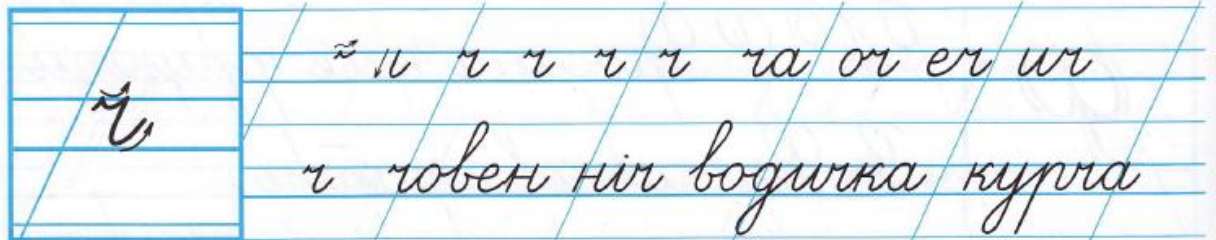 ч
ч ч ч ч ча оч еч ич
ч човен ніч водичка курча